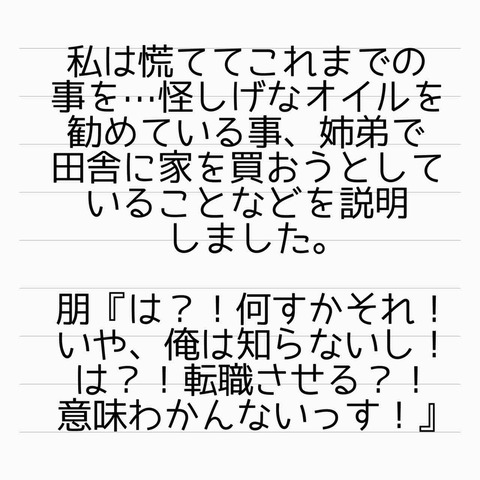 私は慌ててこれまでの
事を…怪しげなオイルを
勧めている事、姉弟で
田舎に家を買おうとして
いることなどを説明
しました。
朋『は？！何すかそれ！
いや、俺は知らないし！
は？！転職させる？！
意味わかんないっす！』